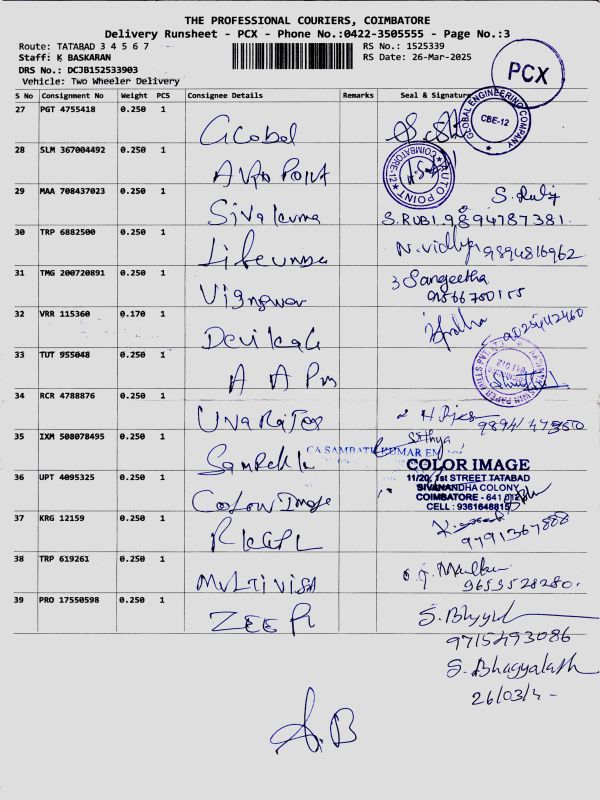 THE PROFESSIONAL COURIERS, COIMBATORE
Delivery Runsheet - PCX - Phone No.:0422-3505555 - Page No.:3
Route: TATABAD 3 4 5 6 7
RS No.: 1525339
Staff: K BASKARAN
RS Date: 26-Mar-2025
DRS No.: DCJB152533903
Vehicle: Two Wheeler Delivery
PCX
S No Consignment No Weight PCS Consignee Details Remarks Seal & Signature
27 PGT 4755418 0.250 1
GLOBAL ENGINEERING COMPANY
CBE-12
28 SLM 367004492 0.250 1
AUTO POINT
COIMBATORE-12
29 MAA 708437023 0.250 1
S. Ruby
Sivakuma S.RUBI 9894787381
30 TRP 6882500 0.250 1
N. vidhya 9894816962
31 TMG 200720891 0.250 1
3 Sangeetha
32 VRR 115360 0.170 1
33 TUT 955048 0.250 1
A A Pm
34 RCR 4788876 0.250 1
35 IXM 508078495 0.250 1
Sathya
CA SAMBATH KUMAR EM
36 UPT 4095325 0.250 1
COLOR IMAGE
11/20, 1st STREET TATABAD
SIVANANDHA COLONY
COIMBATORE - 641 012
CELL : 9361648815
Colour Image
37 KRG 12159 0.250 1
9791367888
38 TRP 619261 0.250 1
MULTI VISA
9655528280.
39 PRO 17550598 0.250 1
ZEE R
9715493086
S. Bhagyalakshmi
26/03/